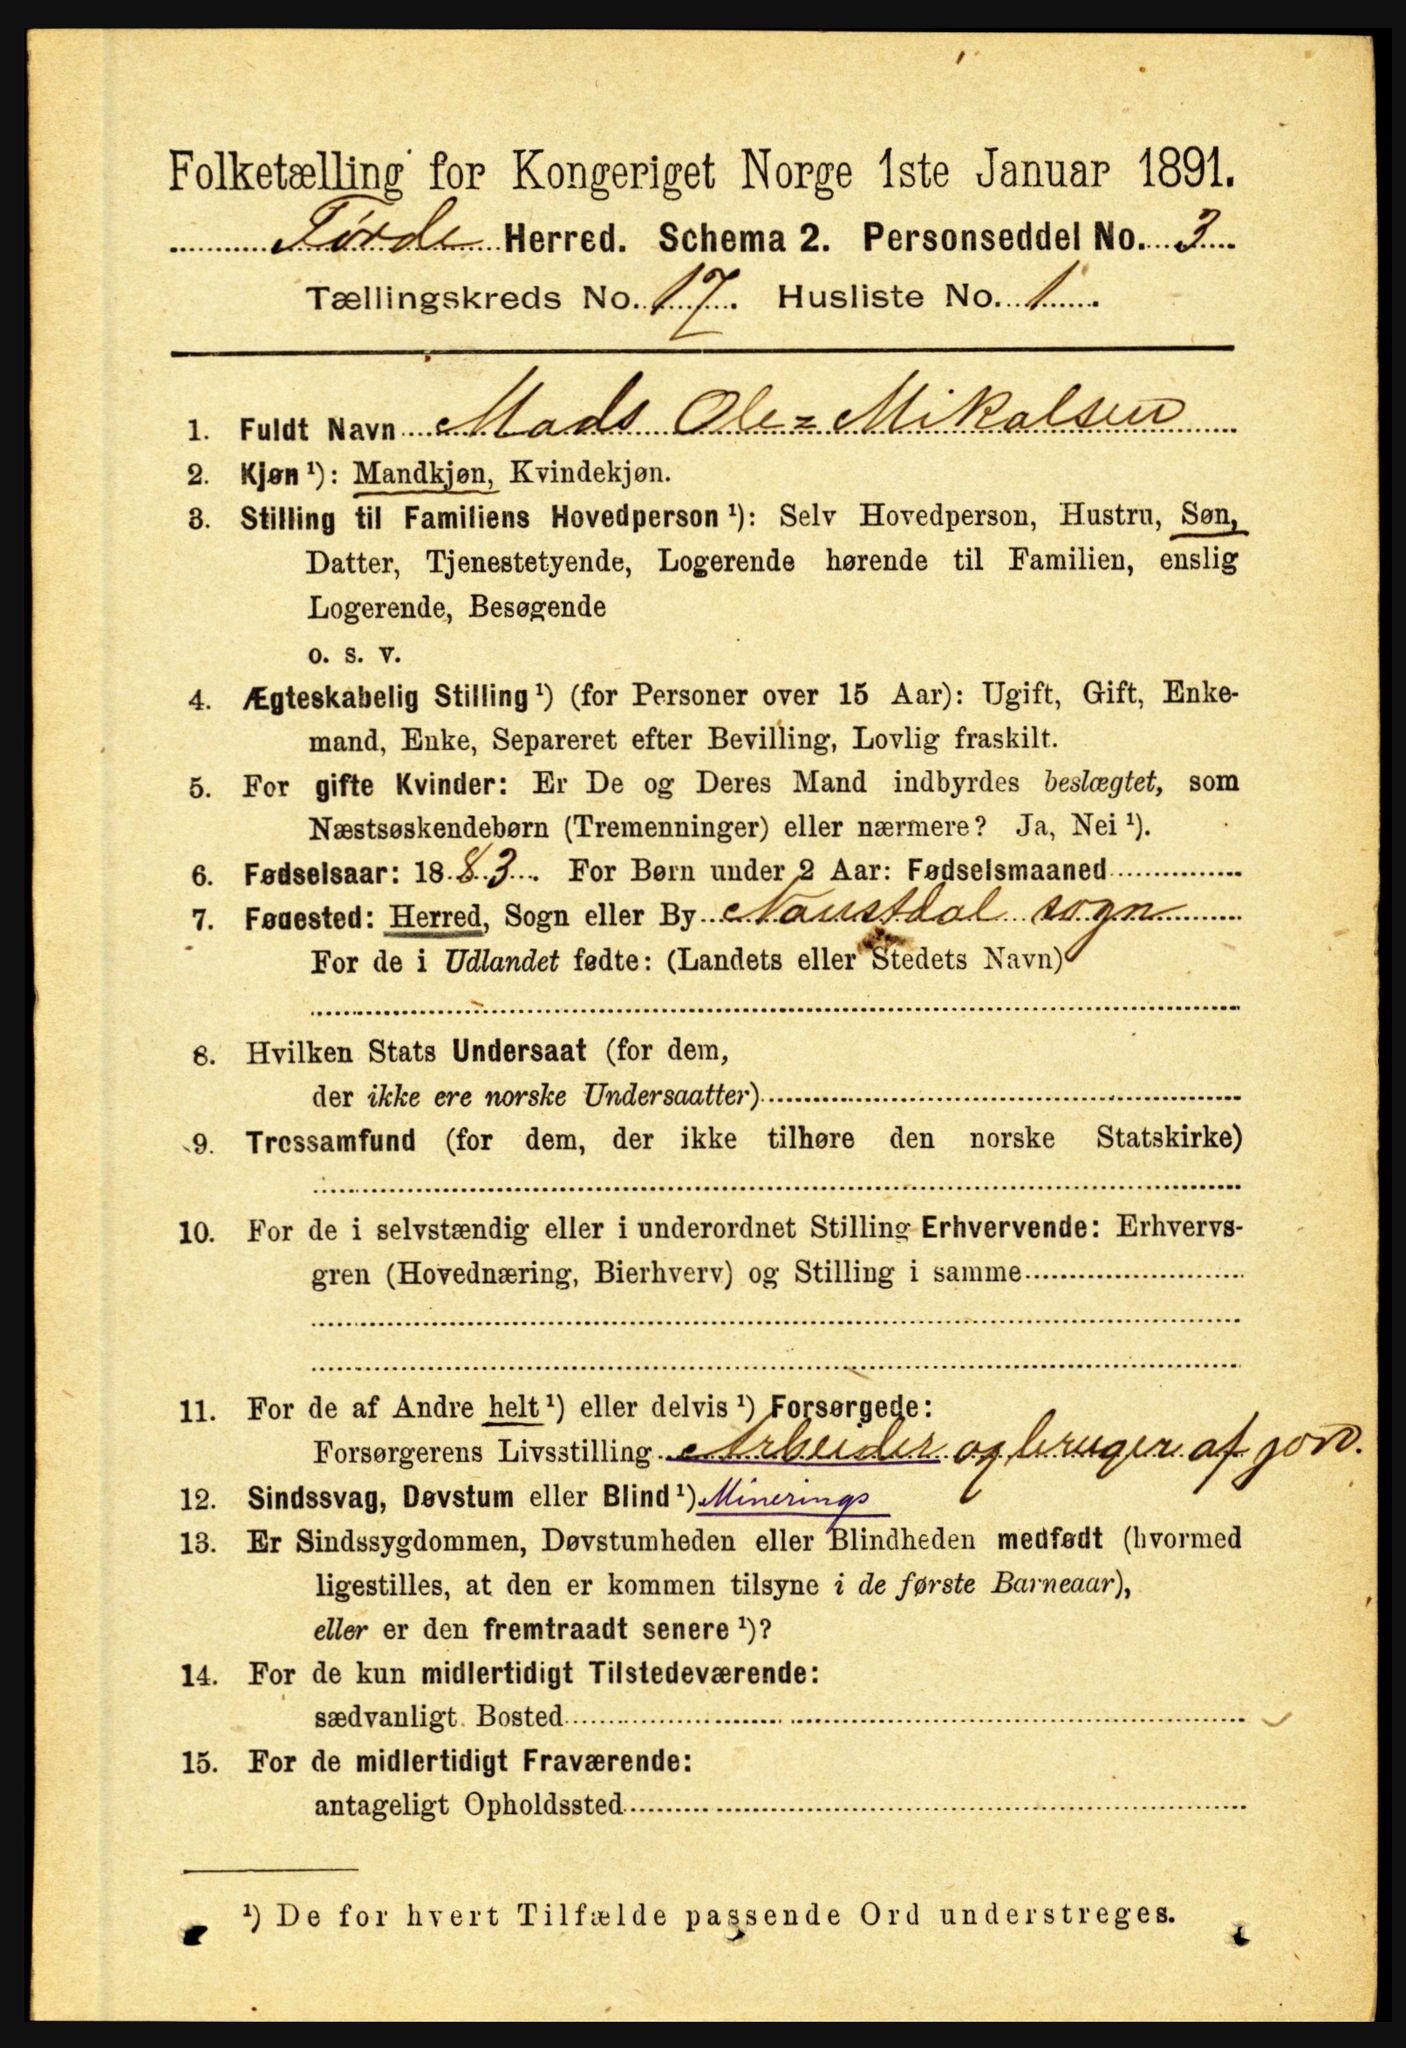 Folketælling for Kongeriget Norge 1ste Januar 1891.
Førde Herred. Schema 2. Personseddel No. 3
Tællingskreds No. 17. Husliste No. 1
1. Fuldt Navn Mads Ole Mikalsen
2. Kjøn ¹): Mandkjøn, Kvindekjøn.
3. Stilling til Familiens Hovedperson ¹): Selv Hovedperson, Hustru, Søn,
Datter, Tjenestetyende, Logerende hørende til Familien, enslig
Logerende, Besøgende
o. s. v.
4. Ægteskabelig Stilling ¹) (for Personer over 15 Aar): Ugift, Gift, Enke-
mand, Enke, Separeret efter Bevilling, Lovlig fraskilt.
5. For gifte Kvinder: Er De og Deres Mand indbyrdes beslægtet, som
Næstsøskendebørn (Tremenninger) eller nærmere? Ja, Nei ¹).
6. Fødselsaar: 1883. For Børn under 2 Aar: Fødselsmaaned
7. Fødested: Herred, Sogn eller By Naustdal sogn
For de i Udlandet fødte: (Landets eller Stedets Navn)
8. Hvilken Stats Undersaat (for dem,
der ikke ere norske Undersaatter)
9. Trossamfund (for dem, der ikke tilhøre den norske Statskirke)
10. For de i selvstændig eller i underordnet Stilling Erhvervende: Erhvervs-
gren (Hovednæring, Bierhverv) og Stilling i samme
11. For de af Andre helt ¹) eller delvis ¹) Forsørgede:
Forsørgerens Livsstilling Arbeider og bruger af jord.
12. Sindssvag, Døvstum eller Blind ¹) Minerings
13. Er Sindssygdommen, Døvstumheden eller Blindheden medfødt (hvormed
ligestilles, at den er kommen tilsyne i de første Barneaar),
eller er den fremtraadt senere ¹)?
14. For de kun midlertidigt Tilstedeværende:
sædvanligt Bosted
15. For de midlertidigt Fraværende:
antageligt Opholdssted
¹) De for hvert Tilfælde passende Ord understreges.